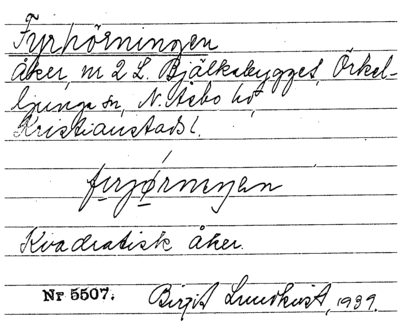 Fyrhörningen
Åker, m 2 L. Bjälkabygget, Örkel-
ljunga sn, N. Åsbo hd,
Kristianstads l.
Kvadratisk åker.
Nr 5507. Birgit Lundkvist, 1939.